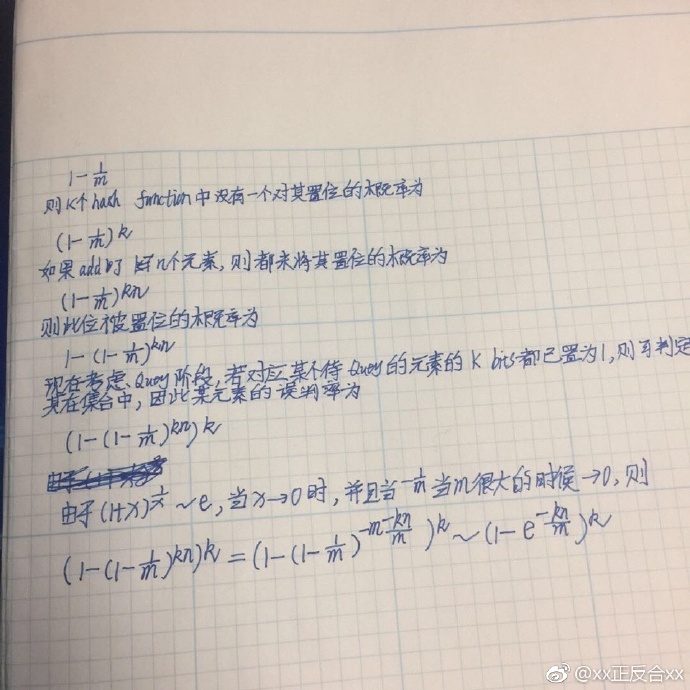 1-1/m
则K个hash function中没有一个对其置位的概率为
(1-1/m)^k
如果add了n个元素,则都未将其置位的概率为
(1-1/m)^kn
则此位被置位的概率为
1-(1-1/m)^kn
现在考虑Query阶段,若对应某个待Query的元素的K bits都已置为1,则可判定
其在集合中,因此某元素的误判率为
(1-(1-1/m)^kn)^k
由于(1+x)^1/x~e,当x→0时,并且当-1/m当m很大的时候→0,则
(1-(1-1/m)^kn)^k=(1-(1-1/m)^-m·-kn/m)^k~(1-e^-kn/m)^k
@xx正反合xx